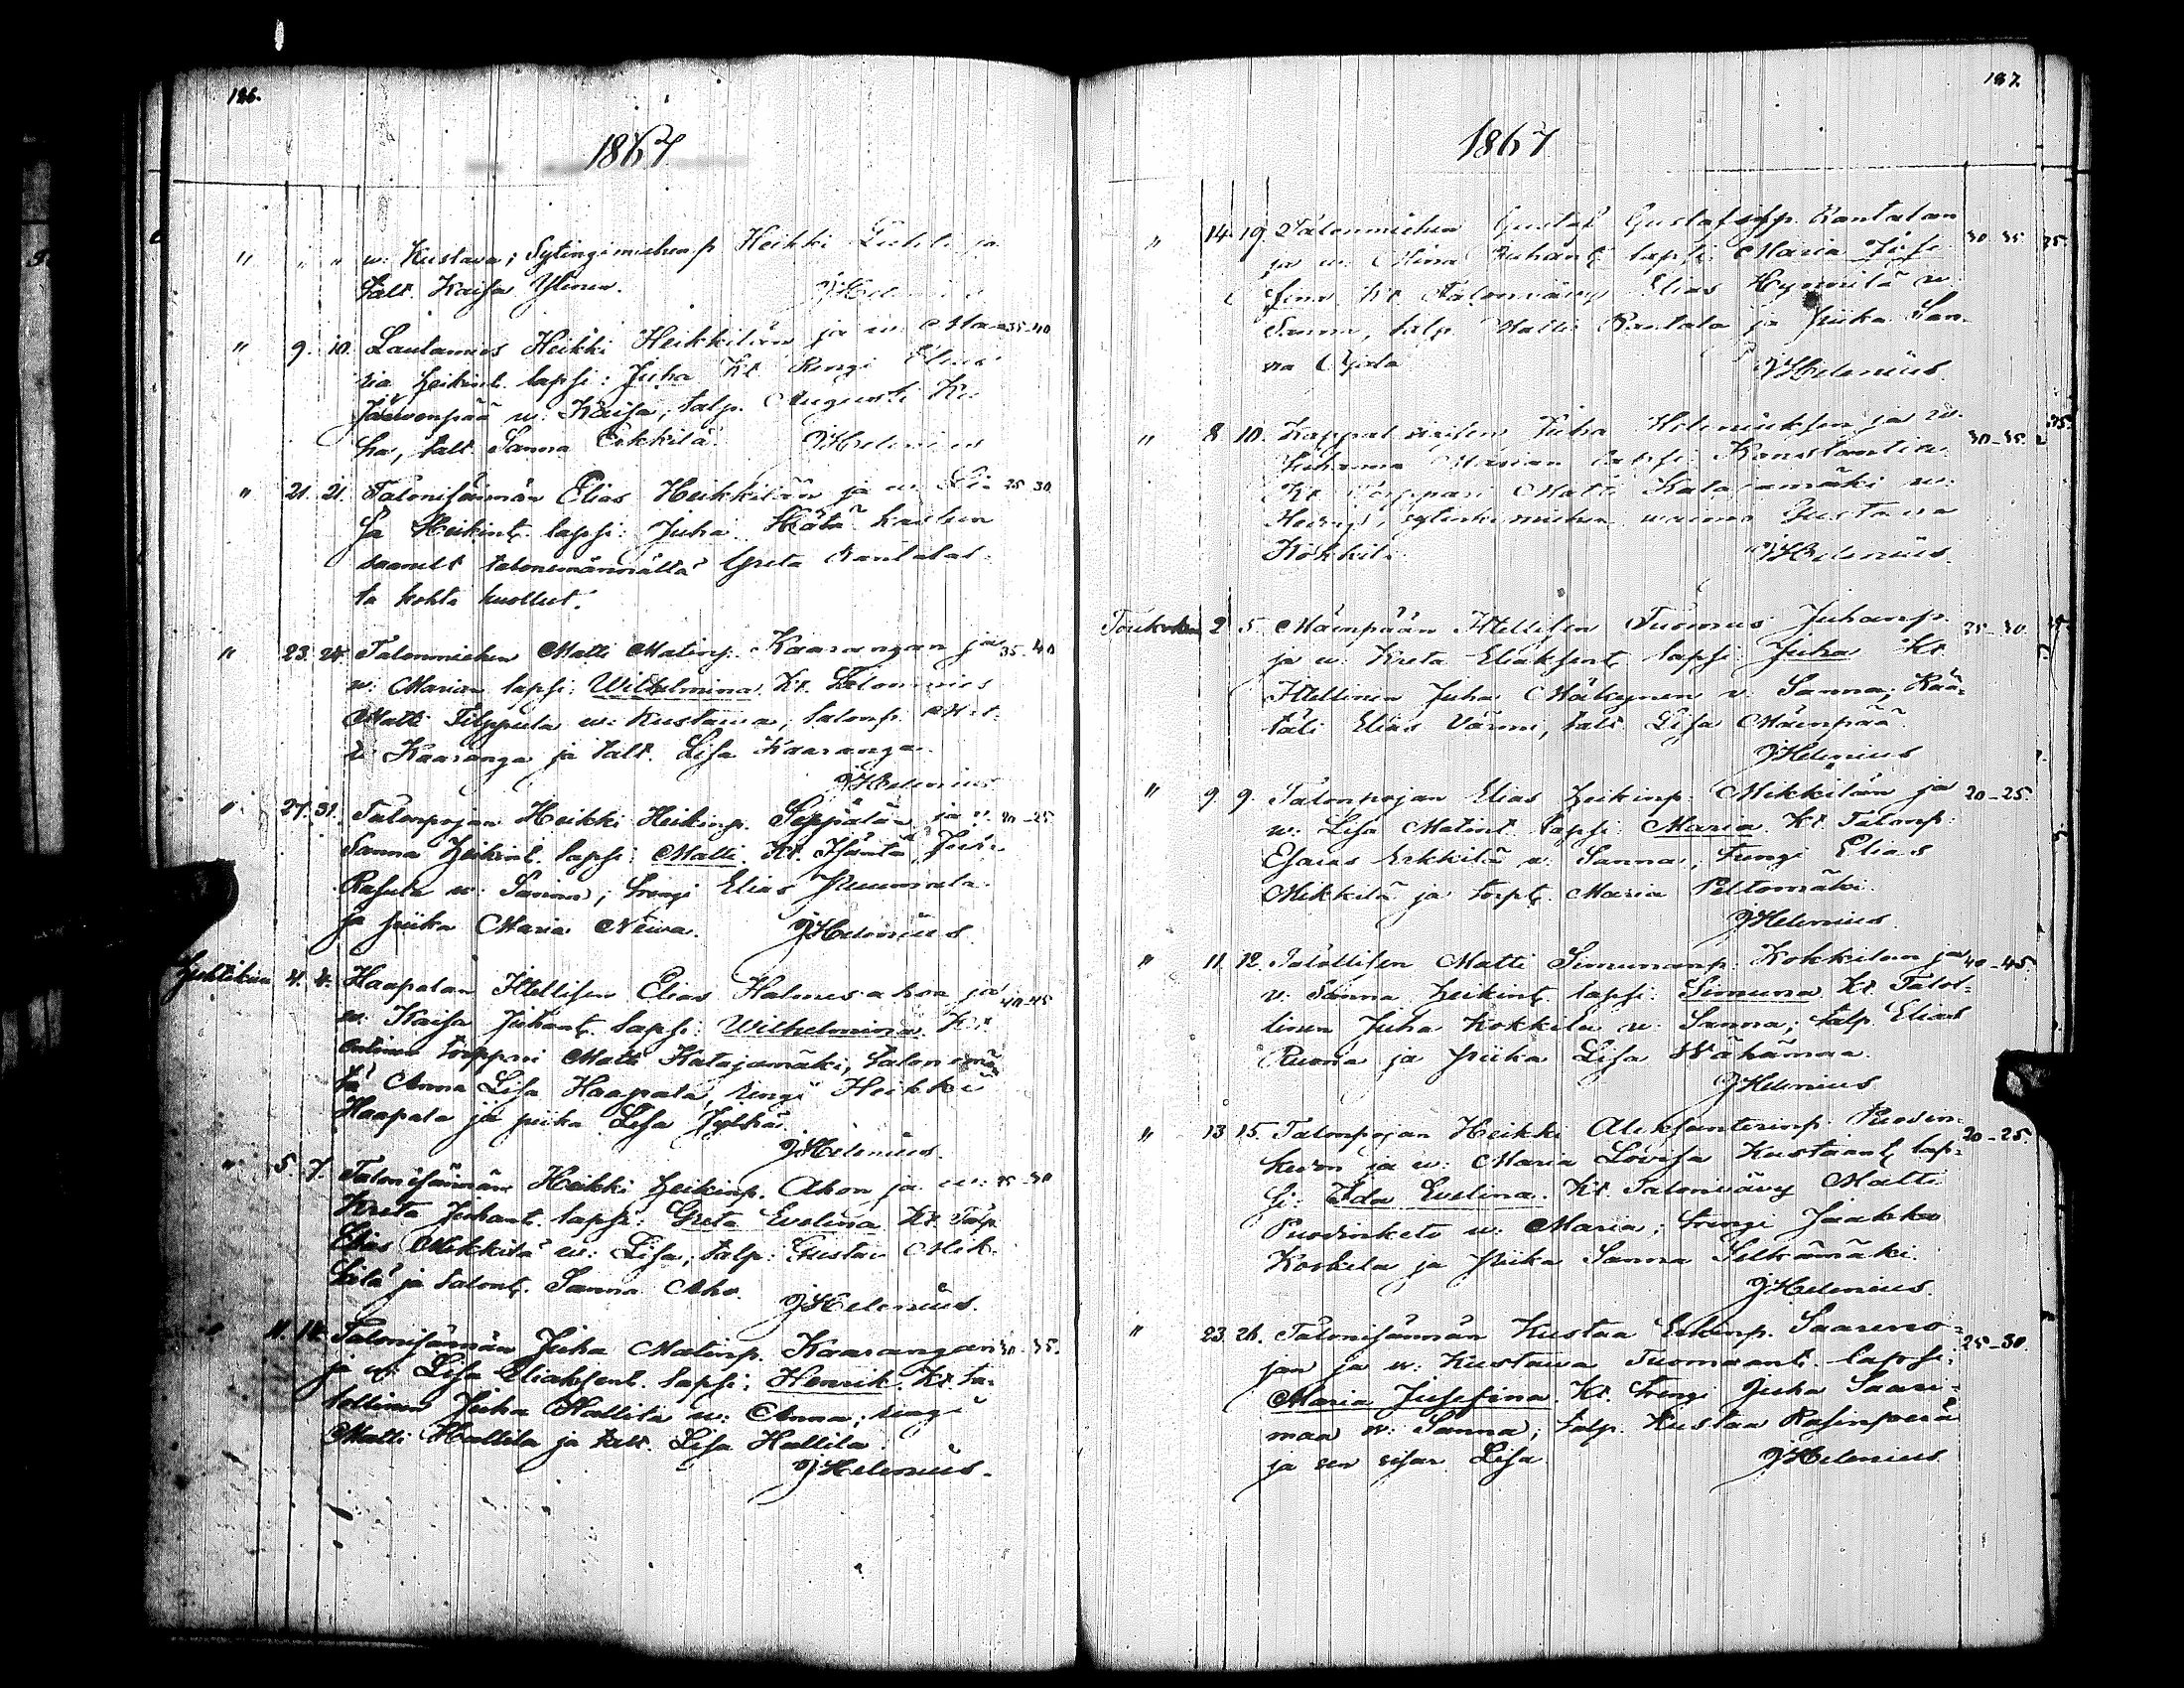 186.
1867
" " " w: Kustava; Sytingimiehenp Heikki
talt. Kaisa Ylinen. JHelenius
" 9. 10. Lautamies Heikki Heikkilän ja w: Ma- 35-40
ria Heikint. lapsi: Juha Kt. Rengi
Järvenpää w: Kaisa, talp. Augusti
ha, talt. Sanna Erkkilä. JHelenius
" 21. 21. Talonisännän Elias Heikkilän ja w: Li- 25-30
sa Heikint. lapsi: Juha Hätä kasteen
saanut talonemännältä Greta Rantalal-
ta kohta kuollut.
" 23. 24. Talonmiehen Matti Matinp. Kaarangan ja 35-40
w: Marian lapsi: Wilhelmina. Kt. Talonmies
Matti Filppula w: Kustawa, talonp.
Kaaranga ja talt. Lisa Kaaranga.
JHelenius
" 27. 31. Talonpojan Heikki Heikinp. Seppälän ja w: 20-25
Sanna Heikint. lapsi: Matti. Kt. Isäntä Juha
Rasula w: Sanna; rengi Elias Puumala
ja piika Maria Newa. JHelenius
Huhtikuu 4. 4. Haapalan Itellisen Elias Halmesahon ja 40-45
w: Kaisa Juhant. lapsi: Wilhelmina. Kt.
entinen torppari Matti Katajamäki, talonemän
tä Anna Lisa Haapala, rengi Heikki
Haapala ja piika Lisa Jylhä.
JHelenius.
" 5. 7. Talonisännän Heikki Heikinp. Ahon ja w: 25-30
Kreta Juhant. lapsi: Greta Evelina Kt. Talp.
Elias Mikkilä w: Lisa, talp: Gustav Mik-
kilä ja talont. Sanna Aho. JHelenius.
" 11. 14. Talonisännän Juha Matinp. Kaarangan 30-35.
ja w: Lisa Eliaksent. lapsi: Henrik. Kt. ta-
lollinen Juha Hallila w: Anna; rengi
Matti Hallila ja talt. Lisa Hallila.
JHelenius.
187.
1867
" 14. 19. Talonmiehen Gustaf Gustafsp. Rantalan 30-35. 35.
ja w: Mina Juhant. lapsi: Maria Jose
fina. Kt. Talonvävy Elias Hynnilä w:
Sanna, talp. Matti Rantala ja piika San-
na
JHelenius
" 8 10. Kappalaisen Juha Heleniuksen ja w: 30-35. 35.
Johanna Marian lapsi: Konstantin
Kt. Torppari Matti Katajamäki w:
Hedvig, sytinkimiehen waimo Gustava
Kokkila JHelenius.
Toukokuu 2 5. Mäenpään Itellisen Tuomas Juhanp. 25-30.
ja w: Kreta Eliaksent. lapsi: Juha Kt.
Itellinen Juha Mäkynen w: Sanna; Rää-
täli Elias Värmi, talt. Lisa Mäenpää
JHelenius
" 9 9. Talonpojan Elias Heikinp. Mikkilän ja 20-25.
w: Lisa Matint. lapsi: Maria. Kt. Talonp:
Esaias Erkkilä w: Sanna, rengi Elias
Mikkilä ja torpt. Maria Peltomäki.
JHelenius
" 11 12. Talollisen Matti Simunanp. Kokkilan ja 40-45.
w: Sanna Heikint. lapsi: Simuna. Kt. Talol-
linen Juha Kokkila w: Sanna; talp. Elias
Ruona ja piika Lisa Wähämaa.
JHelenius
" 13 15. Talonpojan Heikki Aleksanterinp. Puodin- 20-25.
kedon ja w: Maria Lovisa Kustaant. lap-
si: Ida Evelina. Kt. Talonvävy Matti
Puodinketo w: Maria; rengi Jaakko
Koskela ja piika Sanna Selkämäki.
JHelenius.
" 23 26. Talonisännän Kustaa Erkinp. Saareno- 25-30.
jan ja w: Kustawa Tuomaant. lapsi:
Maria Josefina. Kt. rengi Juha Saari-
maa w: Sanna; talp. Kustaa Rasinperä
ja sen sisar Lisa JHelenius